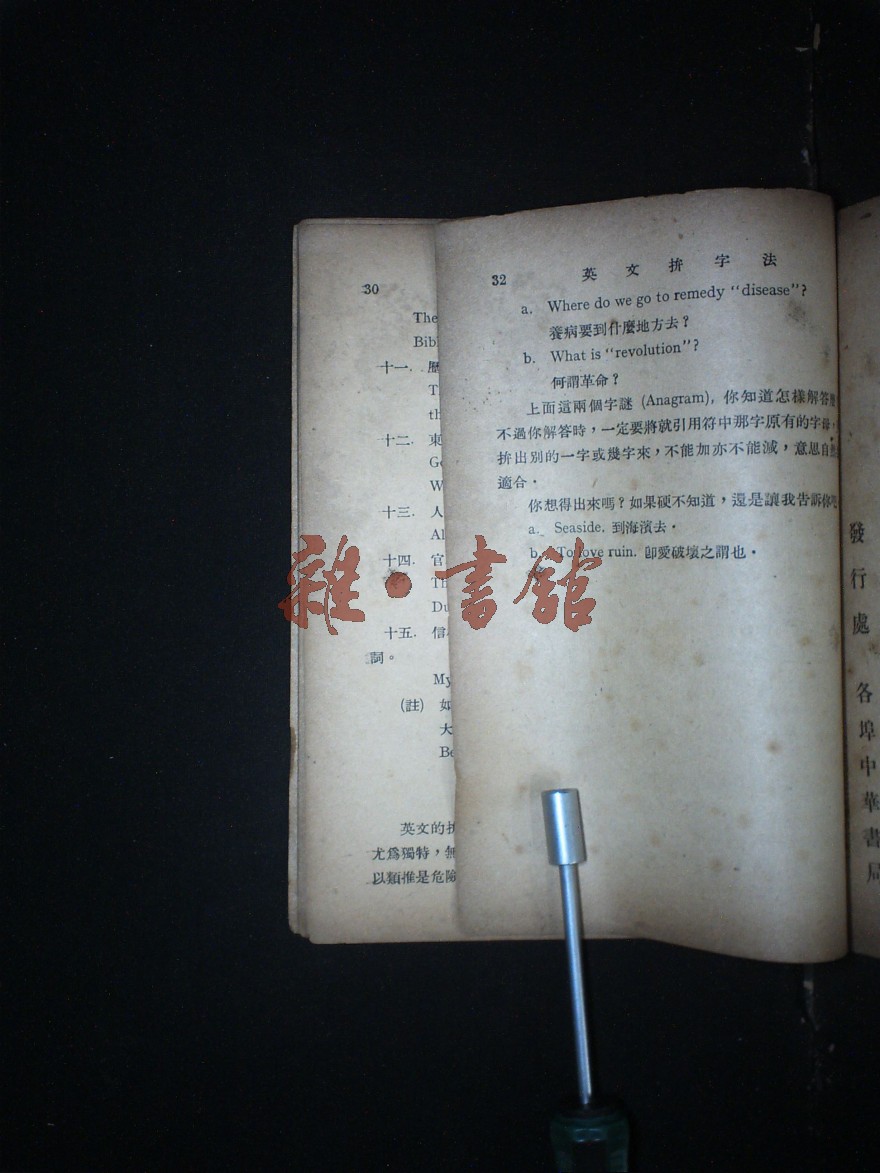 30
The
Bibl
十一. 歷
T
th
十二. 東
Ge
W
十三. 人
Al
十四. 官
Th
Du
十五. 信
詞。
My
(註) 如
大
Be
英文的拚
尤爲獨特，無
以類推是危險
32 英文拚字法
a. Where do we go to remedy "disease"?
養病要到什麼地方去？
b. What is "revolution"?
何謂革命？
上面這兩個字謎 (Anagram), 你知道怎樣解答
不過你解答時，一定要將就引用符中那字原有的字母，
拚出別的一字或幾字來，不能加亦不能減，意思自
適合．
你想得出來嗎？如果硬不知道，還是讓我告訴你吧
a. Seaside. 到海濱去．
b. To love ruin. 卽愛破壞之謂也．
雜·書館
發行處 各埠中華書局